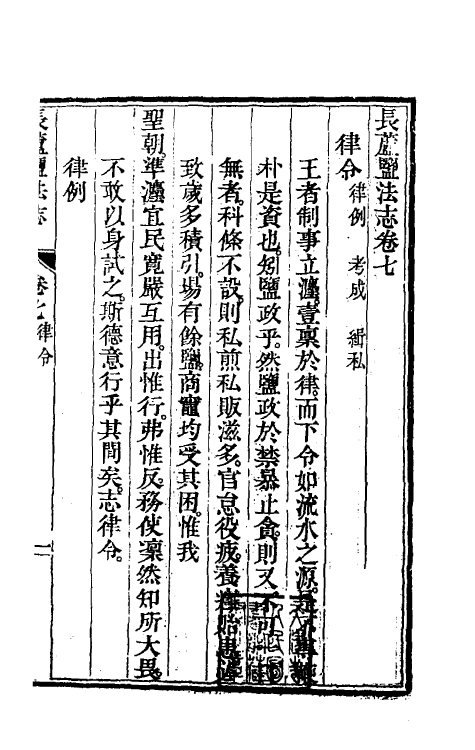 長蘆鹽法志卷七
律令 律例 考成 緝私
王者制事立灋壹稟於律而下令如流水之源
朴是資也矧鹽政乎然鹽政於禁暴止貪則又不可
無者科條不設則私煎私販滋多官怠役疲養癰貽患
致歲多積引場有餘鹽商竈均受其困惟我
聖朝準灋宜民寬嚴互用出惟行弗惟反務使凜然知所大畏
不敢以身試之斯德意行乎其間矣志律令
律例
長蘆鹽法志 卷七 律令 一